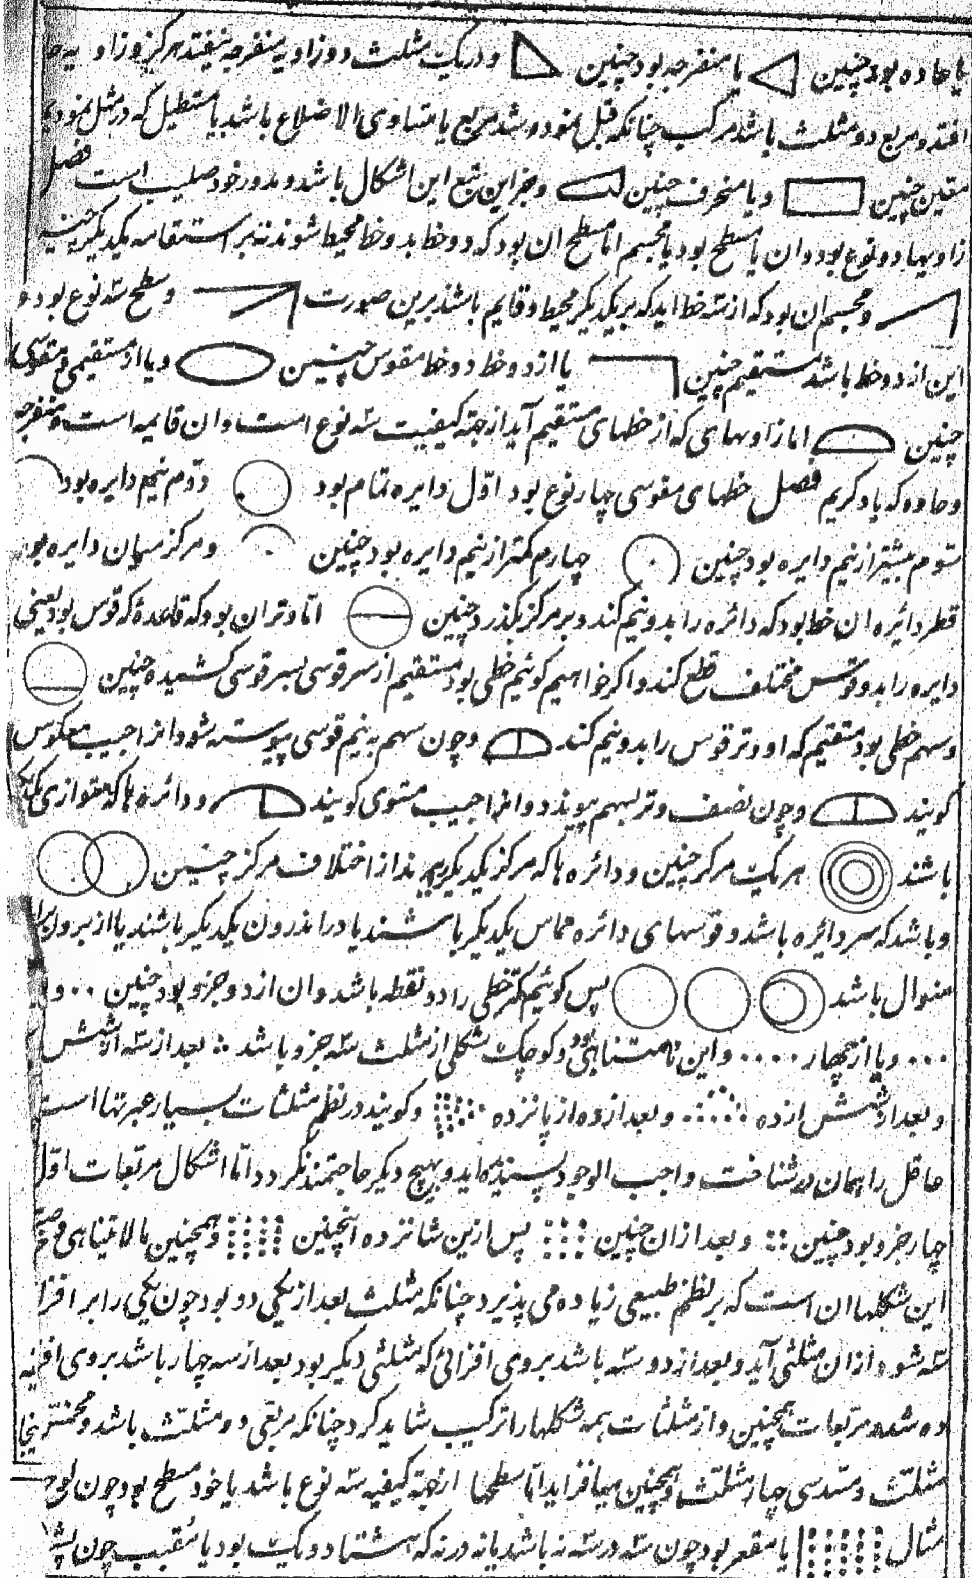 یا حاده بود چنین یا منفرجه بود چنین و در یک مثلث دو زاویه منفرجه نیفتد هرگز و زاویه حا
افتد و مربع دو مثلث باشد مرکب چنانکه قبل نموده شد مربع یا متساوی الاضلاع باشد یا مستطیل که در مثل نمودیم
معین چنین و یا منحرف چنین و جز این تبع این اشکال باشد و مدور خود صلیب است فصل
زاویها دو نوع بود و ان یا مسطح بود یا مجسم اما مسطح ان بود که دو خط بدو خط محیط شوند نه بر استقامه یکدیگر چنین
و مجسم ان بود که از سه خط اید که بر یکدیگر محیط و قایم باشد برین صورت و سطح سه نوع بود و
این از دو خط باشد مستقیم چنین یا از دو خط دو خط مقوس چنین و یا از مستقیمی و مقوسی
چنین اما زاویهای که از خطهای مستقیم آید از جهة کیفیت سه نوع است و ان قایمه است و منفرجه
و حاده که یاد کردیم فصل خطهای مقوسی چهار نوع بود اول دایره تمام بود دوم نیم دایره بود
سوم بیشتر از نیم دایره بود چنین چهارم کمتر از نیم دایره بود چنین و مرکز میان دایره بود
قطر دائیره ان خط بود که دائره را بدو نیم کند و بر مرکز بگذرد چنین اما وتر ان بود که قاعدۀ که قوس بود یعنی
دایره را بدو قوس مختلف قطع کند و اگر خواهیم گوئیم خطی بود مستقیم از سر قوسی بسر قوسی کشیده چنین
و سهم خطی بود مستقیم که او وتر قوس را بدو نیم کند و چون سهم به نیم قوسی پیوسته شود انرا جیب معکوس
گویند و چون نصف وتر بسهم پیوندد و انرا جیب مستوی گویند و دائره ها که متوازی یکدیگر
باشند هر یک مرکز چنین و دائره ها که مرکز یکدیگر ببرند از اختلاف مرکز چنین
و باشد که سر دائیره باشد و قوسهای دائره مماس یکدیگر باشند یا در اندرون یکدیگر باشند یا از بیرون برا
منوال باشد پس گوئیم کمتر خطی را دو نقطه باشد و ان از دو جزو بود چنین و
و یا از چهار و این نامتناهی بود و کوچک شکلی از مثلث سه جزو باشد بعد از سه از شش
و بعد از شش از ده و بعد از ده از پانزده و گویند در نظم مثلثات بسیار عبرتها است
عاقل را همان در شناخت واجب الوجود پسندیده اید و بهیچ دیگر حاجتمند نگردد اما اشکال مربعات اول
چهار جزو بود چنین و بعد از ان چنین پس ازین شانزده اینچنین و همچنین بالا تتناهی و
این شکلها ان است که بر نظم طبیعی زیاده می پذیرد چنانکه مثلث بعد از یکی دو بود چون یکی را بر افزا
سه شود و ازان مثلثی آید و بعد از دو سه باشد بروی افزائی که مثلثی دیگر بود بعد از سه چهار باشد بروی افزاید
ده شده مربعات همچنین و از مثلثات همه شکلها را ترکیب شاید کرد چنانکه مربعی دو مثلث باشد و مخمس
مثلث و مسدسی چهار مثلث و همچنین میافزاید اما سطحها از جهة کیفیه سه نوع باشد یا خود مسطح بود چون لوح
مثال یا مقعر بود چون سه در سه نه باشد یا نه در نه که هشتاد و یک بود یا مقبب چون